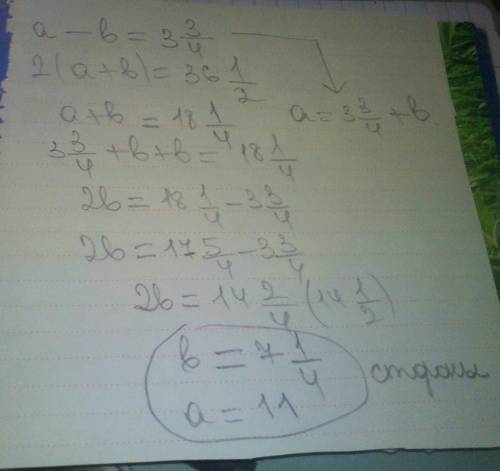 a - b = 3 3/4
2(a+b) = 36 1/2
a+b = 18 1/4 a = 3 3/4 + b
3 3/4 + b + b = 18 1/4
2b = 18 1/4 - 3 3/4
2b = 17 5/4 - 3 3/4
2b = 14 2/4 (14 1/2)
b = 7 1/4
a = 11
стороны